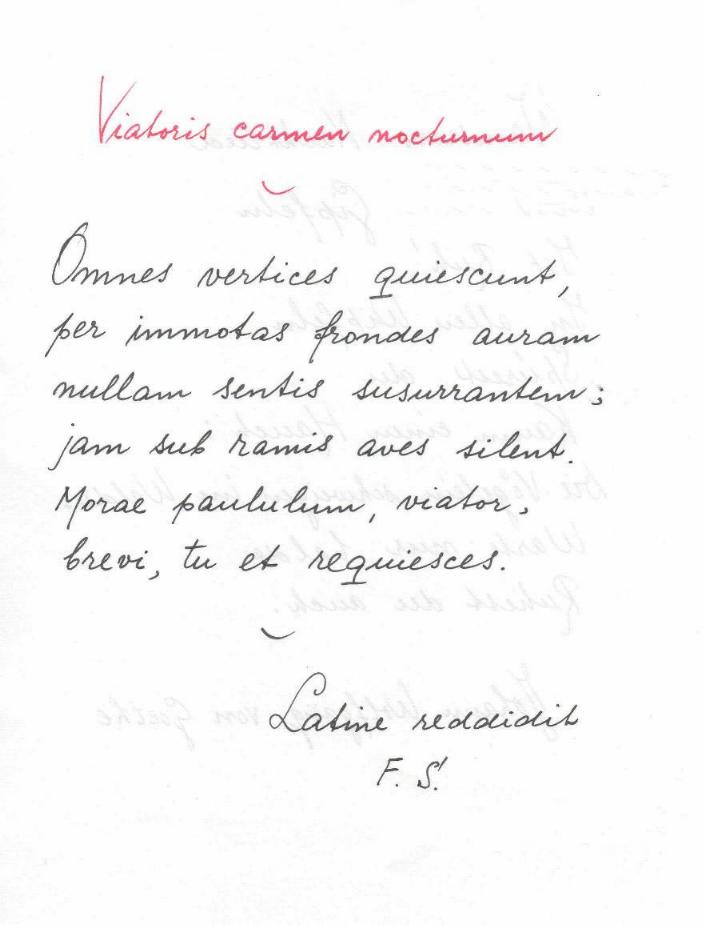 Viatoris carmen nocturnum
Omnes vertices quiescunt,
per immotas frondes auram
nullam sentis susurrantem;
jam sub ramis aves silent.
Morae paululum, viator,
brevi, tu et requiesces.
Latine reddidit
F. S.